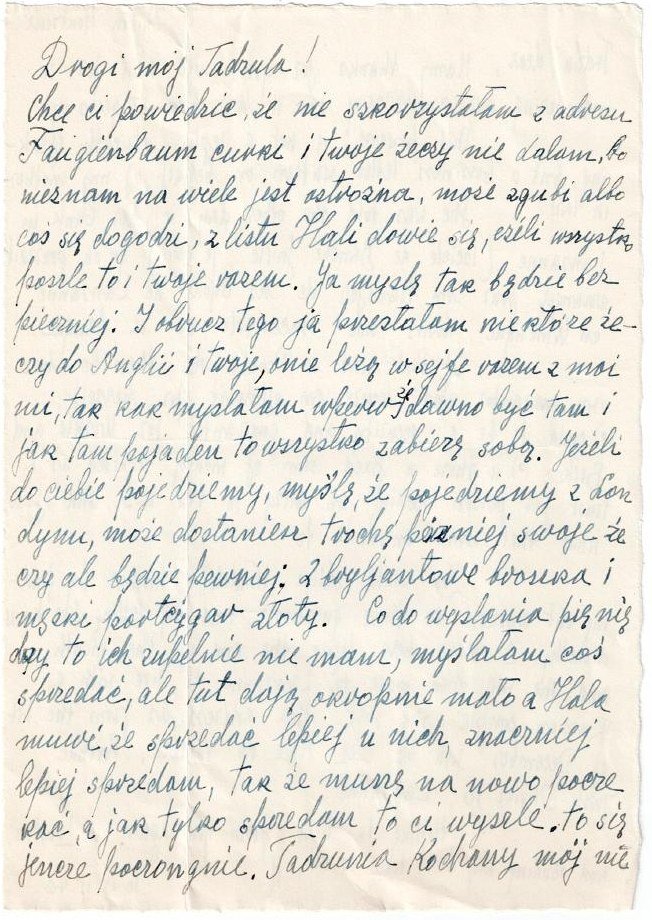 Drogi mój Tadzula!
Chcę ci powiedzic, że nie szkorzystałam z adresu
Faigienbaum curki i twoje żeczy nie dałam, bo
nieznam na wiele jest ostrożna, może zgubi albo
coś się dogodzi, z listu Hali dowie się, eżeli wszystko
poszle to i twoje razem. Ja myślę tak będzie bez
pieczniej. I obrucz tego ja przesłałam niektóre że-
czy do Anglii i twoje, onie leżą w sejfe razem z moi
mi, tak kak myslałam wperw że dawno być tam i
jak tam pojaden to wszystko zabierę sobą. Jeżeli
do ciebie pojedziemy, myślę, że pojedziemy z Lon
dynu, może dostaniesz trochę pizniej swoje że
czy ale będzie pewniej. 2 bryljantowe broszka i
męzki portcygar złoty. Co do wysłania pięnię
dzy to ich zupełnie nie mam, myślałam coś
sprzedać, ale tut dają okropnie mało a Hala
muwi, że sprzedac lepiej u nich, znaczniej
lepiej sprzedam, tak że muszę na nowo pocze
kać, a jak tylko sprzedam to ci wyszlę. to się
jencze poczongnie. Tadzunia Kochany mój nie